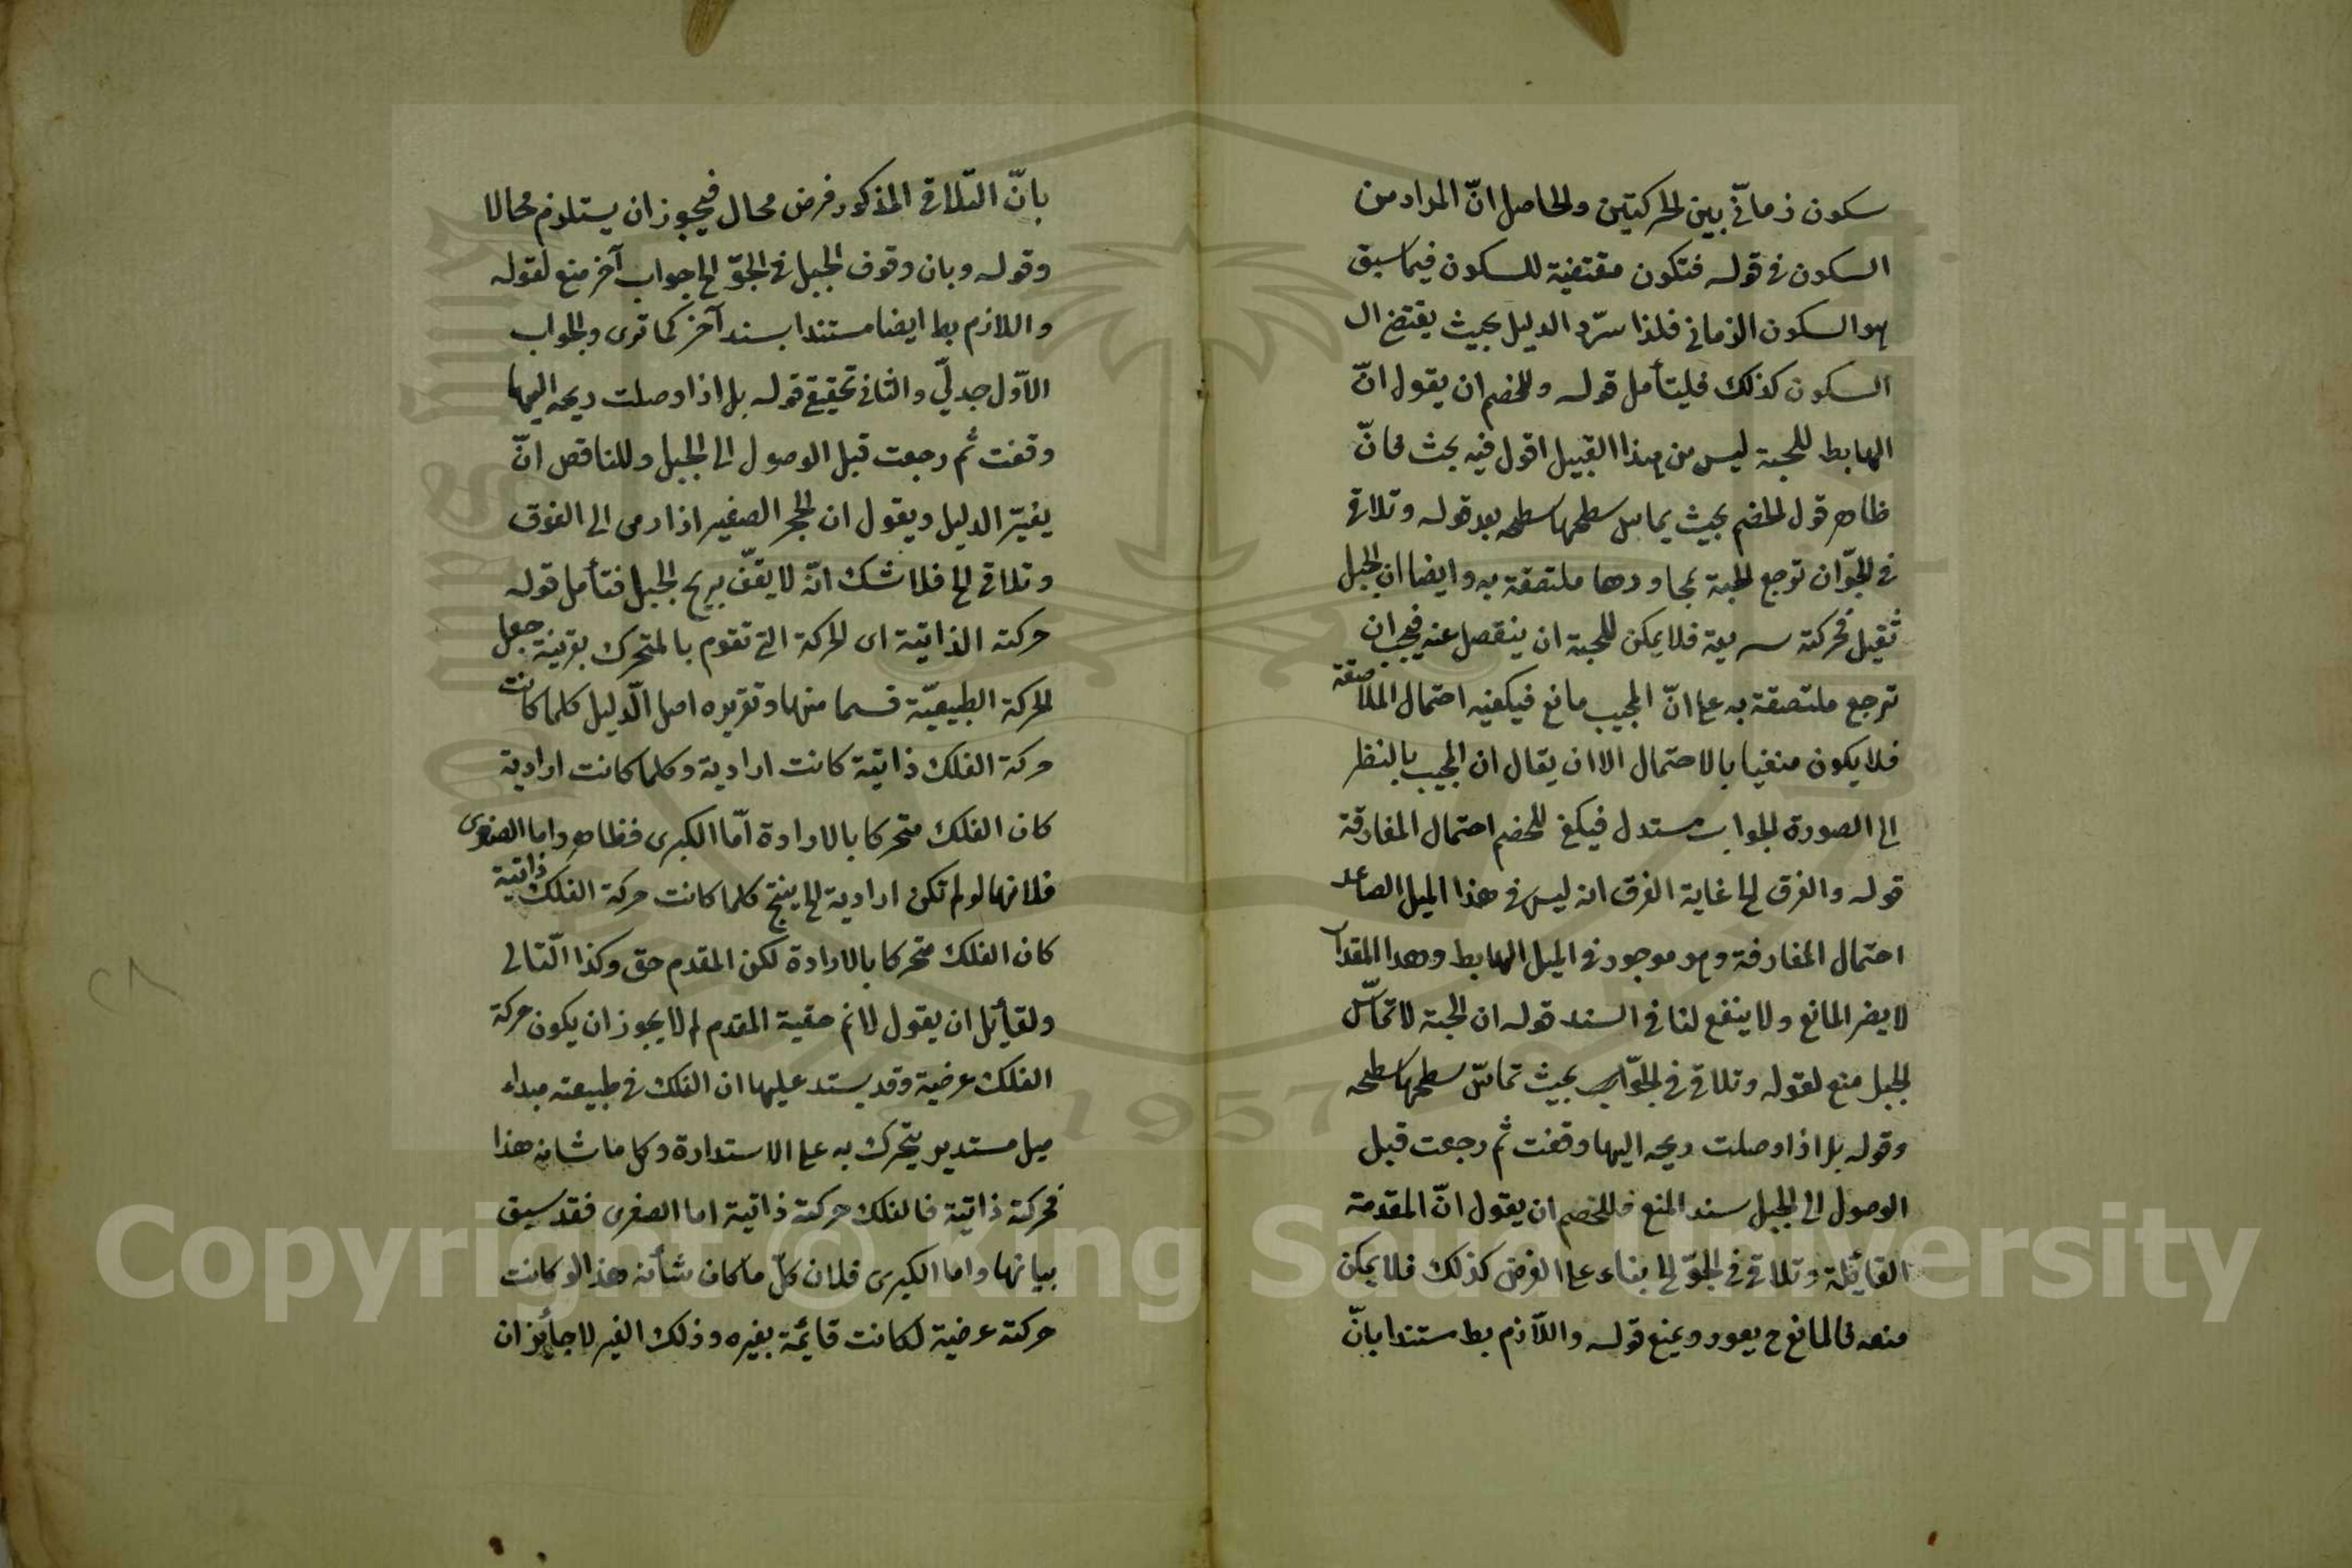 سكون زمانّى بين الحركتين والحاصل انّ المراد من
السكون فى قوله فتكون مقتضية للسكون فيما سبق
هو السكون الزمانى فلذا سرّد الدليل بحيث يقتضى ال
السكون كذلك فليتأمل قوله وللخصم ان يقول انّ
الهابط للحبة ليس من هذا القبيل اقول فيه بحث فانّ
ظاهر قول الخصم بحيث يماس سطحها سطحه بعد قوله وتلاقى
فى الجوّ ان ترجع الحبة بمجاورها ملتصقة به وايضا ان الجبل
ثقيل فحركته سريعة فلا يمكن للحبة ان ينفصل عنه فيجب ان
ترجع ملتصقة به على انّ المجيب مانع فيكفيه احتمال الملاصقة
فلا يكون منفيا بالاحتمال الا ان يقال ان المجيب بالنظر
الى الصورة الجواب مستدل فيكفى للخصم احتمال المفارقة
قوله والفرق الخ غاية الفرق انه ليس فى هذا الميل الصاعد
احتمال المفارقة وهو موجود فى الميل الهابط وهذا المقدار
لا يضر المانع ولا ينفع لنا فى السند قوله ان الحبة لا تماسّ
الجبل منع لقوله وتلاقى فى الجوّ بحيث تماسّ سطحها سطحه
وقوله بل اذا وصلت ريحه اليها وقفت ثم رجعت قبل
الوصول الى الجبل سند المنع فللخصم ان يقول انّ المقدمة
القائلة وتلاقى فى الجوّ الخ بناء على الفرض كذلك فلا يمكن
منعه فالمانع ح يعود ويمنع قوله واللاّزم بط مستندا بانّ
بانّ التلاقى المذكور فرض محال فيجوز ان يستلزم محالا
وقوله وبان وقوف الجبل فى الجوّ الخ جواب آخر منع لقوله
واللازم بط ايضا مستندا بسند آخر كما ترى والجواب
الاوّل جدلّي والثانى تحقيقى قوله بل اذا وصلت ريحه اليها
وقفت ثم رجعت قبل الوصول الى الجبل وللناقض انّ
يغيّر الدليل ويقول ان الحجر الصغير اذا رمى الى الفوق
وتلاقى الخ فلا شك انّه لا يقف بريح الجبل فتأمل قوله
حركته الذاتية اى الحركة التى تقوم بالمتحرك بقرينة جعل
الحركة الطبيعيّة قسما منها وتقريره اصل الدّليل كلما كانت
حركة الفلك ذاتية كانت ارادية وكلما كانت ارادية
كان الفلك متحركا بالارادة امّا الكبرى فظاهر واما الصغرى
فلانها لو لم تكن ارادية الخ ينتج كلما كانت حركة الفلك ذاتية
كان الفلك متحركا بالارادة لكن المقدم حق وكذا التّالى
ولقائل ان يقول لا نم حقية المقدم لم لا يجوز ان يكون حركة
الفلك عرضية وقد يستدل عليها ان الفلك فى طبيعته مبداء
ميل مستدير يتحرك به على الاستدارة وكل ما شانه هذا
فحركته ذاتية فالفلك حركته ذاتية اما الصغرى فقد سبق
بيانها واما الكبرى فلان كلّ ما كان شأنه هذا لو كانت
حركته عرضية لكانت قائمة بغيره وذلك الغير لا جائز ان
Copyright © King Saud University
1957